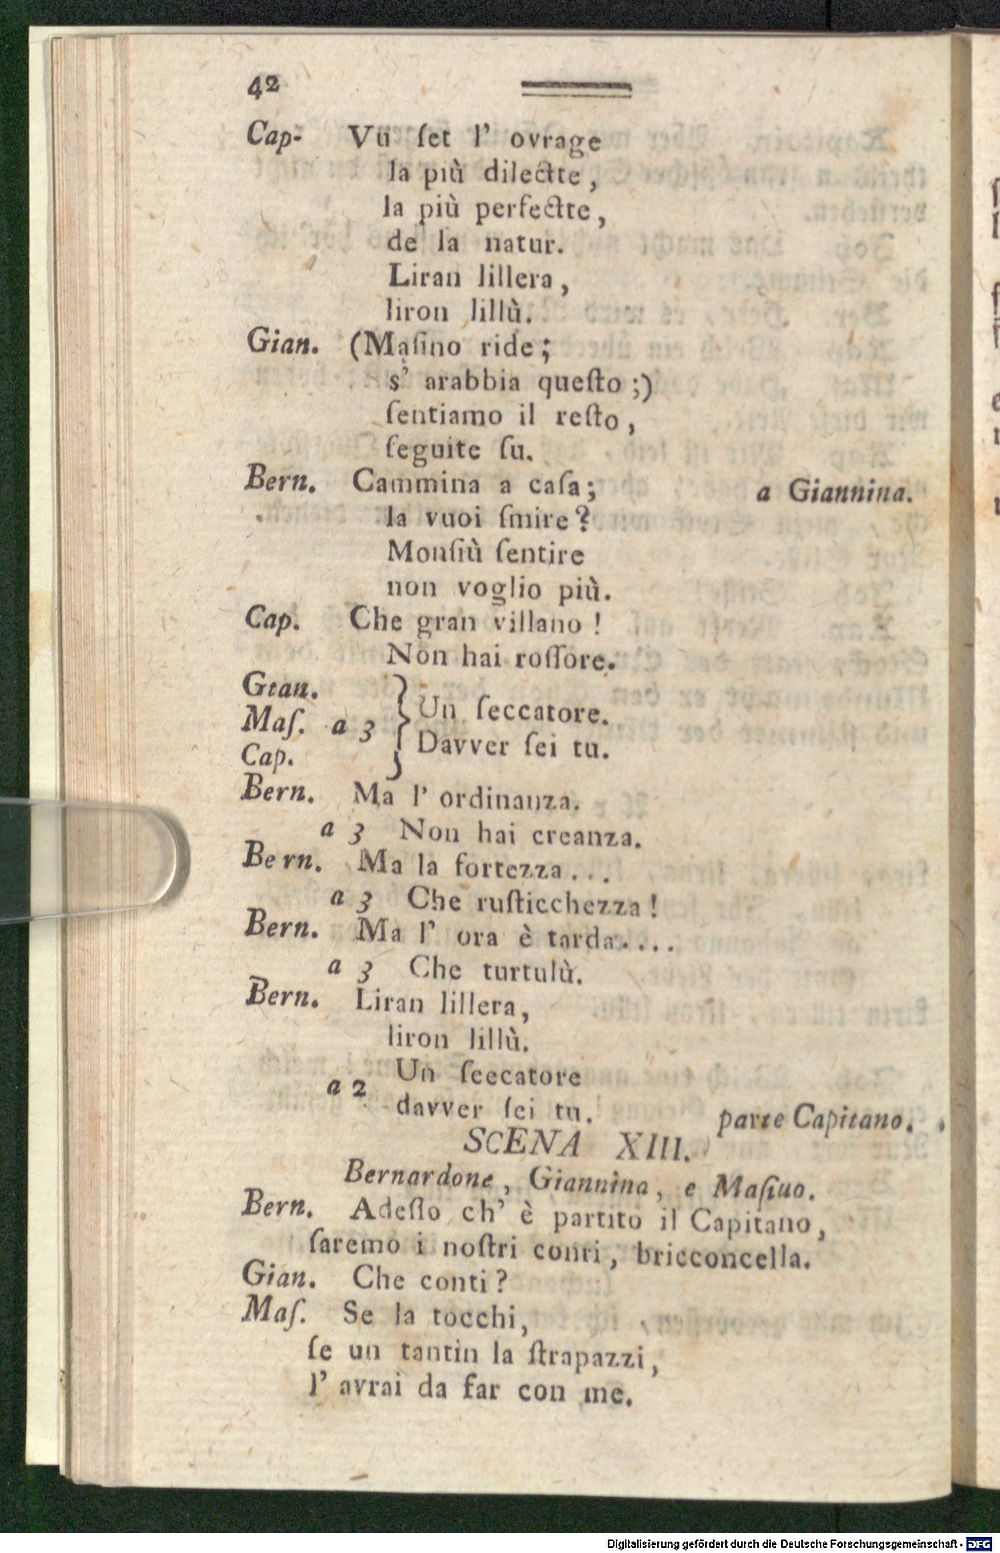 42
Cap- Vu ſet l' ovrage
la più dilectte,
la più perfectte,
de la natur.
Liran lillera,
liron lillù.
Gian. (Maſino ride;
s' arabbia queſto;)
ſentiamo il reſto,
ſeguite ſu.
Bern. Cammina a caſa; a Giannina.
la vuoi ſinire?
Monſiù ſentire
non voglio più.
Cap. Che gran villano!
Non hai roſſore.
Gian.
Maſ. a 3 Un ſeccatore.
Cap. Davver ſei tu.
Bern. Ma l' ordinanza.
a 3 Non hai creanza.
Bern. Ma la fortezza...
a 3 Che ruſticchezza!
Bern. Ma l' ora è tarda....
a 3 Che turtulù.
Bern. Liran lillera,
liron lillù.
a 2 Un ſeecatore
davver ſei tu. parte Capitano.
SCENA XIII.
Bernardone, Giannina, e Maſiuo.
Bern. Adeſſo ch' è partito il Capitano,
faremo i noſtri conti, bricconcella.
Gian. Che conti?
Maſ. Se la tocchi,
ſe un tantin la ſtrapazzi,
l' avrai da far con me.
Digitalisierung gefördert durch die Deutsche Forschungsgemeinschaft - DFG